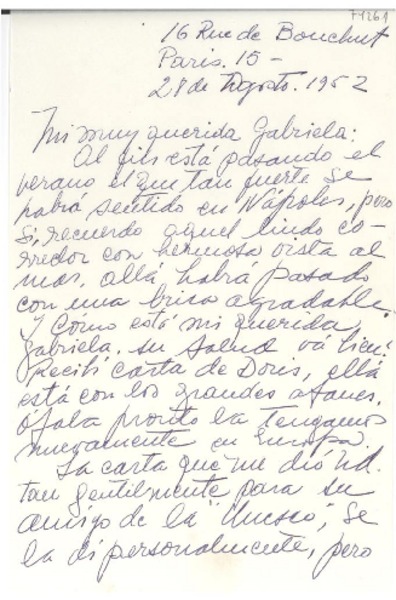 71261
16 Rue de Bouchut
Paris. 15 -
28 de Agosto. 1952
Mi muy querida Gabriela:
Al fin está pasando el
verano el que tan fuerte se
habrá sentido en Nápoles, pero
si, recuerdo aquel lindo co-
rredor con hermosa vista al
mar, allá habrá pasado
con una brisa agradable.
Y Cómo está mi querida
Gabriela. su salud vá bien?
Recibí carta de Doris, ella
está con los grandes afanes.
Ójala pronto la tengamos
nuevamente en Europa.
La carta que me dió Ud.
tan gentilmente para su
amigo de la "Unesco", se
la dí personalmente, pero